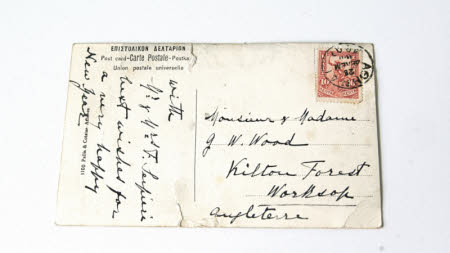 ΕΠΙΣΤΟΛΙΚΟΝ ΔΕΛΤΑΡΙΟΝ
Post card-Carte Postale-Postkarte
Union postale universelle
with
Mr & Mrs F. Serpieri
best wishes for
a very happy
New Year
Monsieur & Madame
G W. Wood
Kilton Forest
Worksop
Angleterre